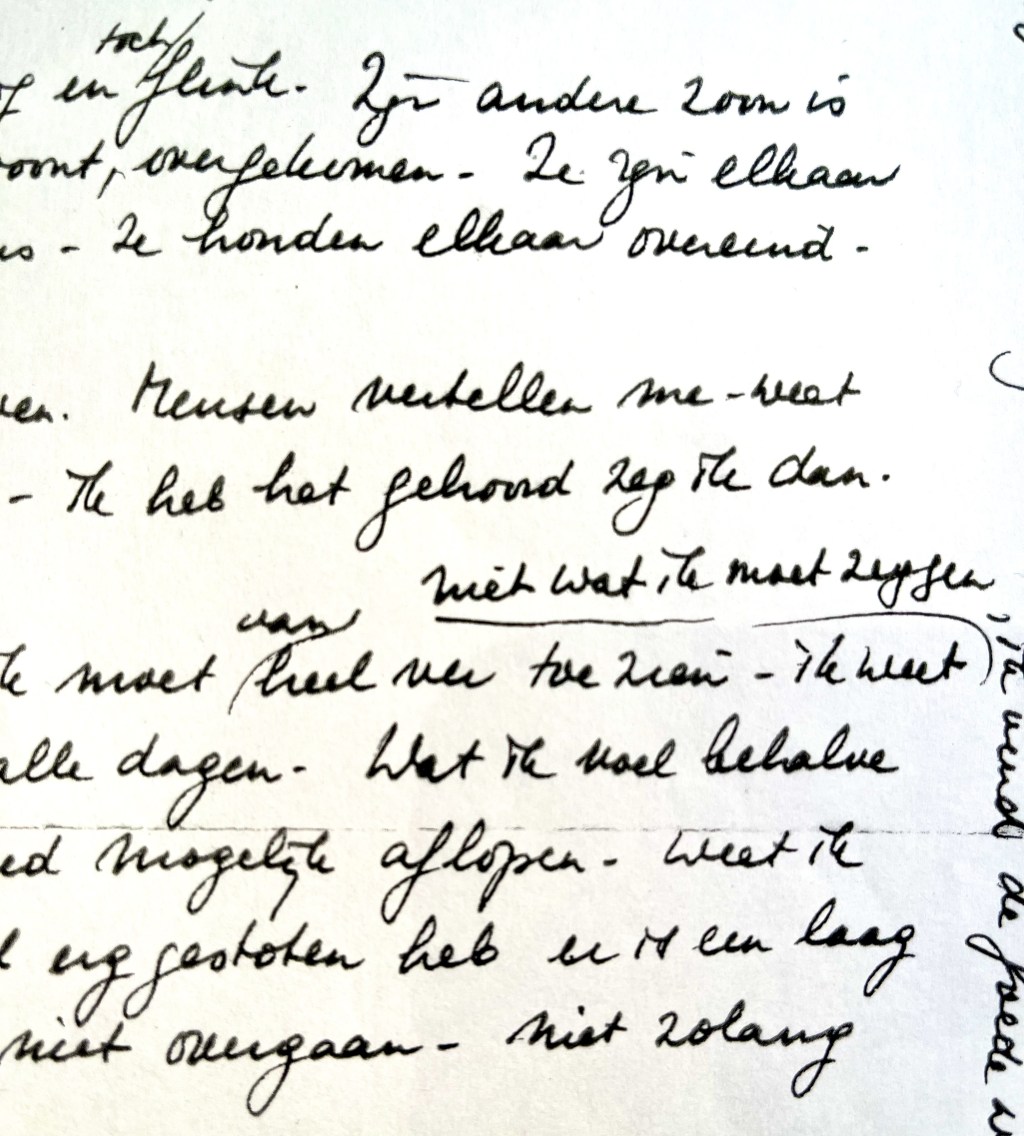 toch
en flink. Zijn andere zoon is
woont, overgekomen - Ze zijn elkaar
- Ze houden elkaar overeind -
Mensen vertellen me - weet
- Ik heb het gehoord zeg ik dan.
niet wat ik moet zeggen,
van
ik moet heel ver toe zien - ik weet
alle dagen - Wat ik voel behalve
mogelijk aflopen - weet ik
erg gestoten heb er is een laag
niet overgaan - niet zolang
ik vind de goede